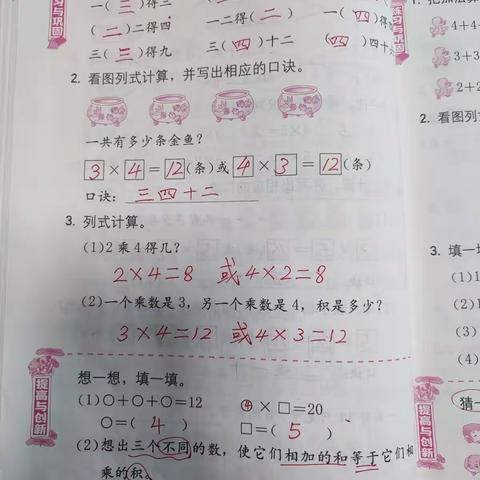 一(三)得三
一二得(二)
一(四)得
(二)二得四
三(三)得九
三(四)十二
(四)四十六
练习与巩固
2. 看图列式计算，并写出相应的口诀。
一共有多少条金鱼？
3×4=12(条)或4×3=12(条)
口诀：三四十二
3. 列式计算。
(1)2乘4得几？
2×4=8 或4×2=8
(2)一个乘数是3，另一个乘数是4，积是多少？
3×4=12 或4×3=12
提高与创新
想一想，填一填。
(1)○+○+○=12 ④×□=20
○=(4) □=(5)
(2)想出三个不同的数，使它们相加的和等于它们相
乘的积。
练习与巩固
4+4
3+3
2+2
2. 看图列
3. 填一
(1)
(2)
(3)
(4)
提高与创新
猜一